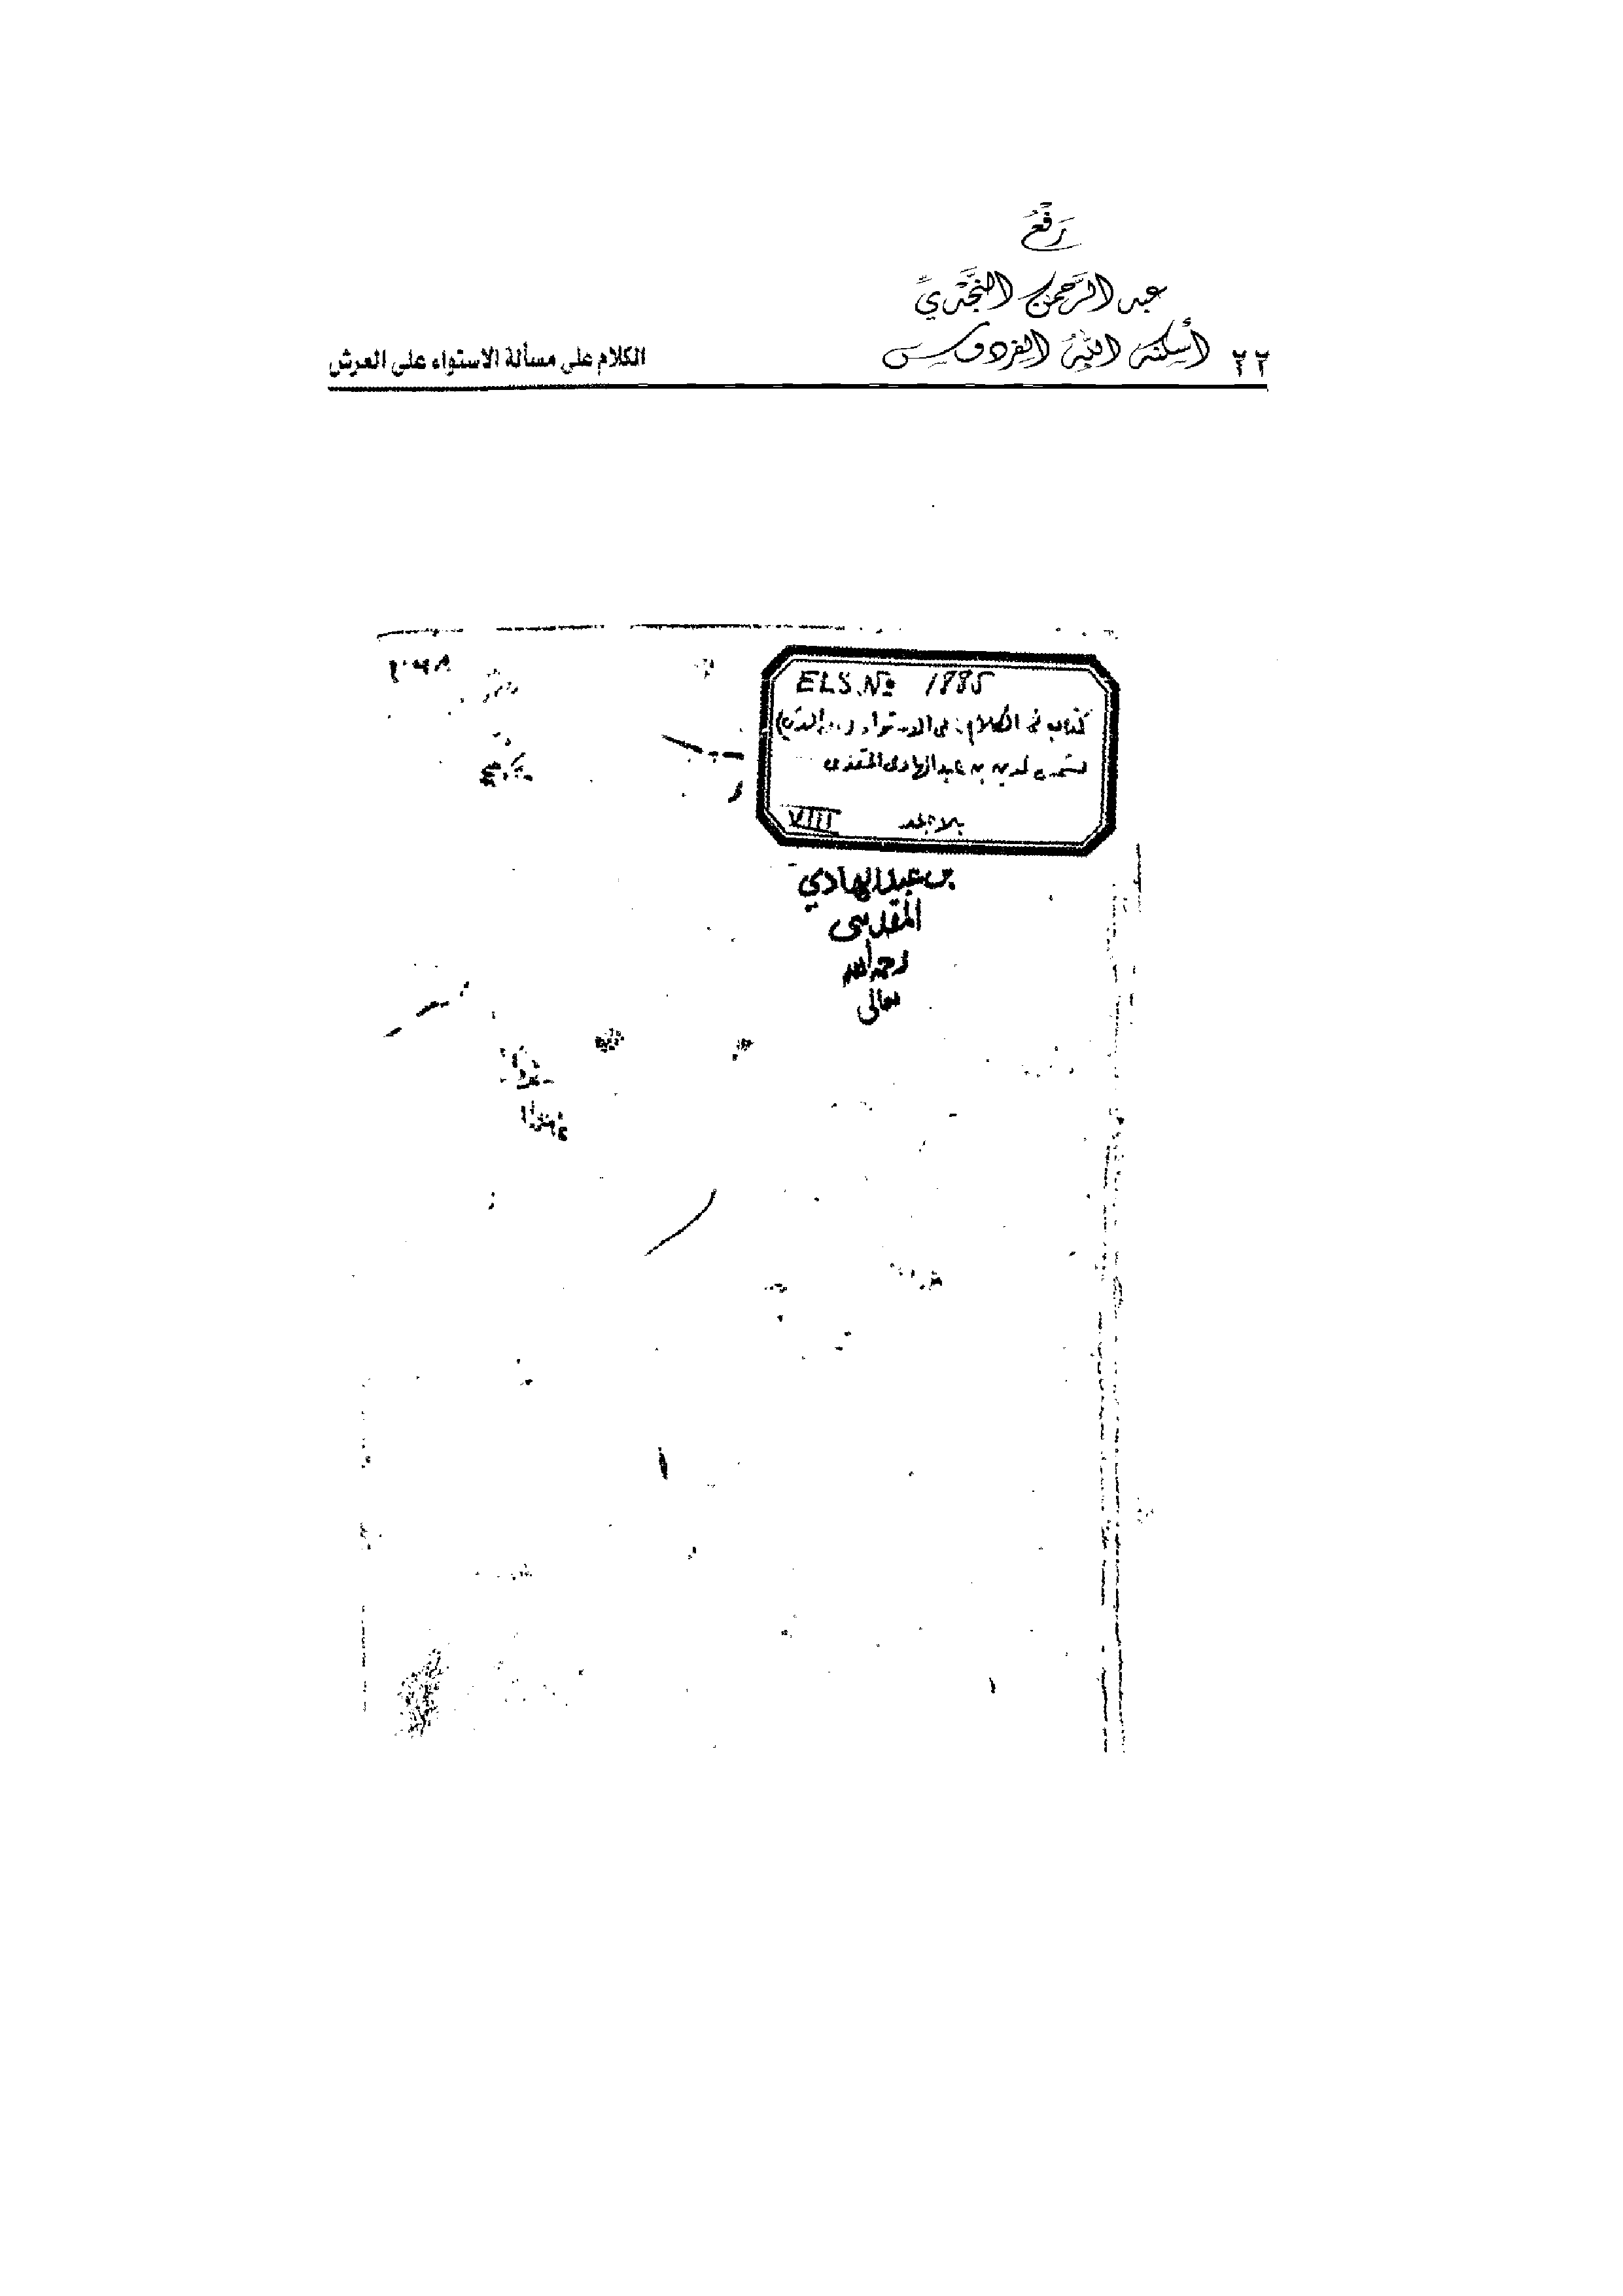 رَفْعُ
عبد الرَّحمن النَّجْديِّ
أسكنه اللهُ الفردوس
٢٢ الكلام على مسألة الاستواء على العرش
ELS. No 1885
كتاب في الكلام على الاستواء
لشمس الدين بن عبد الهادي المقدسي
VIII
بن عبد الهادي
المقدسي
رحمه الله
تعالى